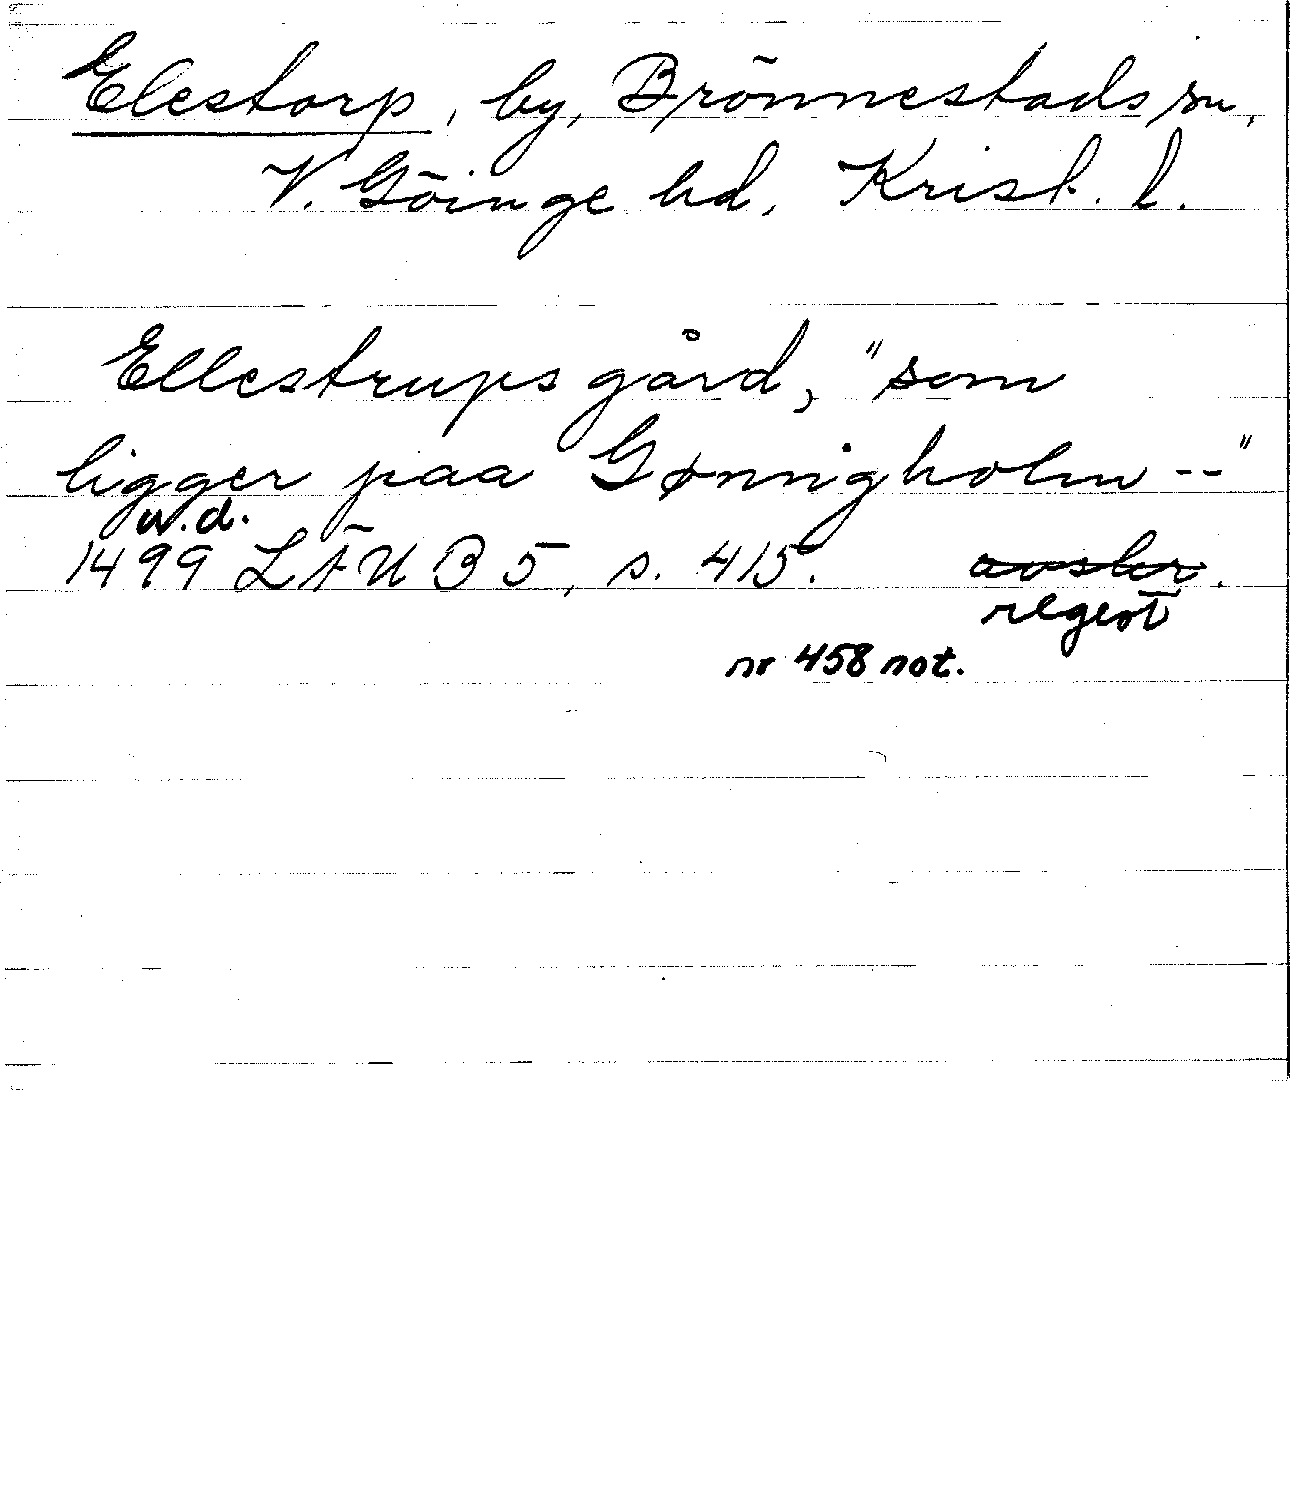 Elestorp, by, Brönnestads sn,
V. Göinge hd, Krist. l.
Ellestrupsgård, "som
ligger paa Gønnigholm --"
u.d.
1499 LÄUB 5, s. 415. avskr.
regest
nr 458 not.